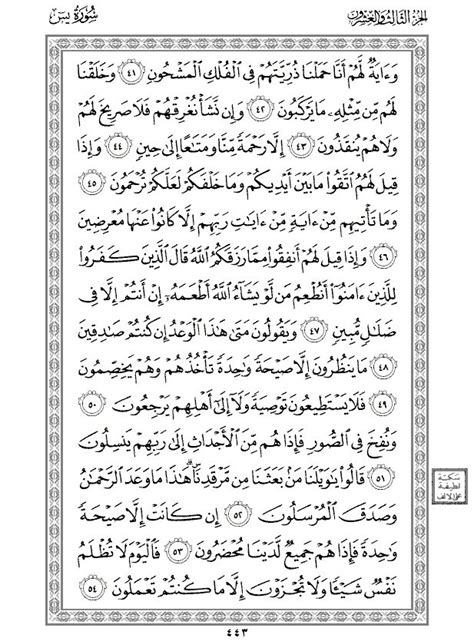 الجزء الثالث والعشرون
سورة يس
وَءَايَةٌ لَّهُمْ أَنَّا حَمَلْنَا ذُرِّيَّتَهُمْ فِي الْفُلْكِ الْمَشْحُونِ ٤١ وَخَلَقْنَا
لَهُم مِّن مِّثْلِهِ مَا يَرْكَبُونَ ٤٢ وَإِن نَّشَأْ نُغْرِقْهُمْ فَلَا صَرِيخَ لَهُمْ
وَلَا هُمْ يُنقَذُونَ ٤٣ إِلَّا رَحْمَةً مِّنَّا وَمَتَاعًا إِلَىٰ حِينٍ ٤٤ وَإِذَا
قِيلَ لَهُمُ اتَّقُوا مَا بَيْنَ أَيْدِيكُمْ وَمَا خَلْفَكُمْ لَعَلَّكُمْ تُرْحَمُونَ ٤٥
وَمَا تَأْتِيهِم مِّنْ ءَايَةٍ مِّنْ ءَايَاتِ رَبِّهِمْ إِلَّا كَانُوا عَنْهَا مُعْرِضِينَ
٤٦ وَإِذَا قِيلَ لَهُمْ أَنفِقُوا مِمَّا رَزَقَكُمُ اللَّهُ قَالَ الَّذِينَ كَفَرُوا
لِلَّذِينَ ءَامَنُوا أَنُطْعِمُ مَن لَّوْ يَشَاءُ اللَّهُ أَطْعَمَهُ إِنْ أَنتُمْ إِلَّا فِي
ضَلَالٍ مُّبِينٍ ٤٧ وَيَقُولُونَ مَتَىٰ هَٰذَا الْوَعْدُ إِن كُنتُمْ صَادِقِينَ
٤٨ مَا يَنظُرُونَ إِلَّا صَيْحَةً وَاحِدَةً تَأْخُذُهُمْ وَهُمْ يَخِصِّمُونَ
٤٩ فَلَا يَسْتَطِيعُونَ تَوْصِيَةً وَلَا إِلَىٰ أَهْلِهِمْ يَرْجِعُونَ ٥٠
وَنُفِخَ فِي الصُّورِ فَإِذَا هُم مِّنَ الْأَجْدَاثِ إِلَىٰ رَبِّهِمْ يَنسِلُونَ
٥١ قَالُوا يَا وَيْلَنَا مَن بَعَثَنَا مِن مَّرْقَدِنَا ۜ هَٰذَا مَا وَعَدَ الرَّحْمَٰنُ
وَصَدَقَ الْمُرْسَلُونَ ٥٢ إِن كَانَتْ إِلَّا صَيْحَةً
وَاحِدَةً فَإِذَا هُمْ جَمِيعٌ لَّدَيْنَا مُحْضَرُونَ ٥٣ فَالْيَوْمَ لَا تُظْلَمُ
نَفْسٌ شَيْئًا وَلَا تُجْزَوْنَ إِلَّا مَا كُنتُمْ تَعْمَلُونَ ٥٤
سكتة
لطيفة
على الألف
٤٤٣